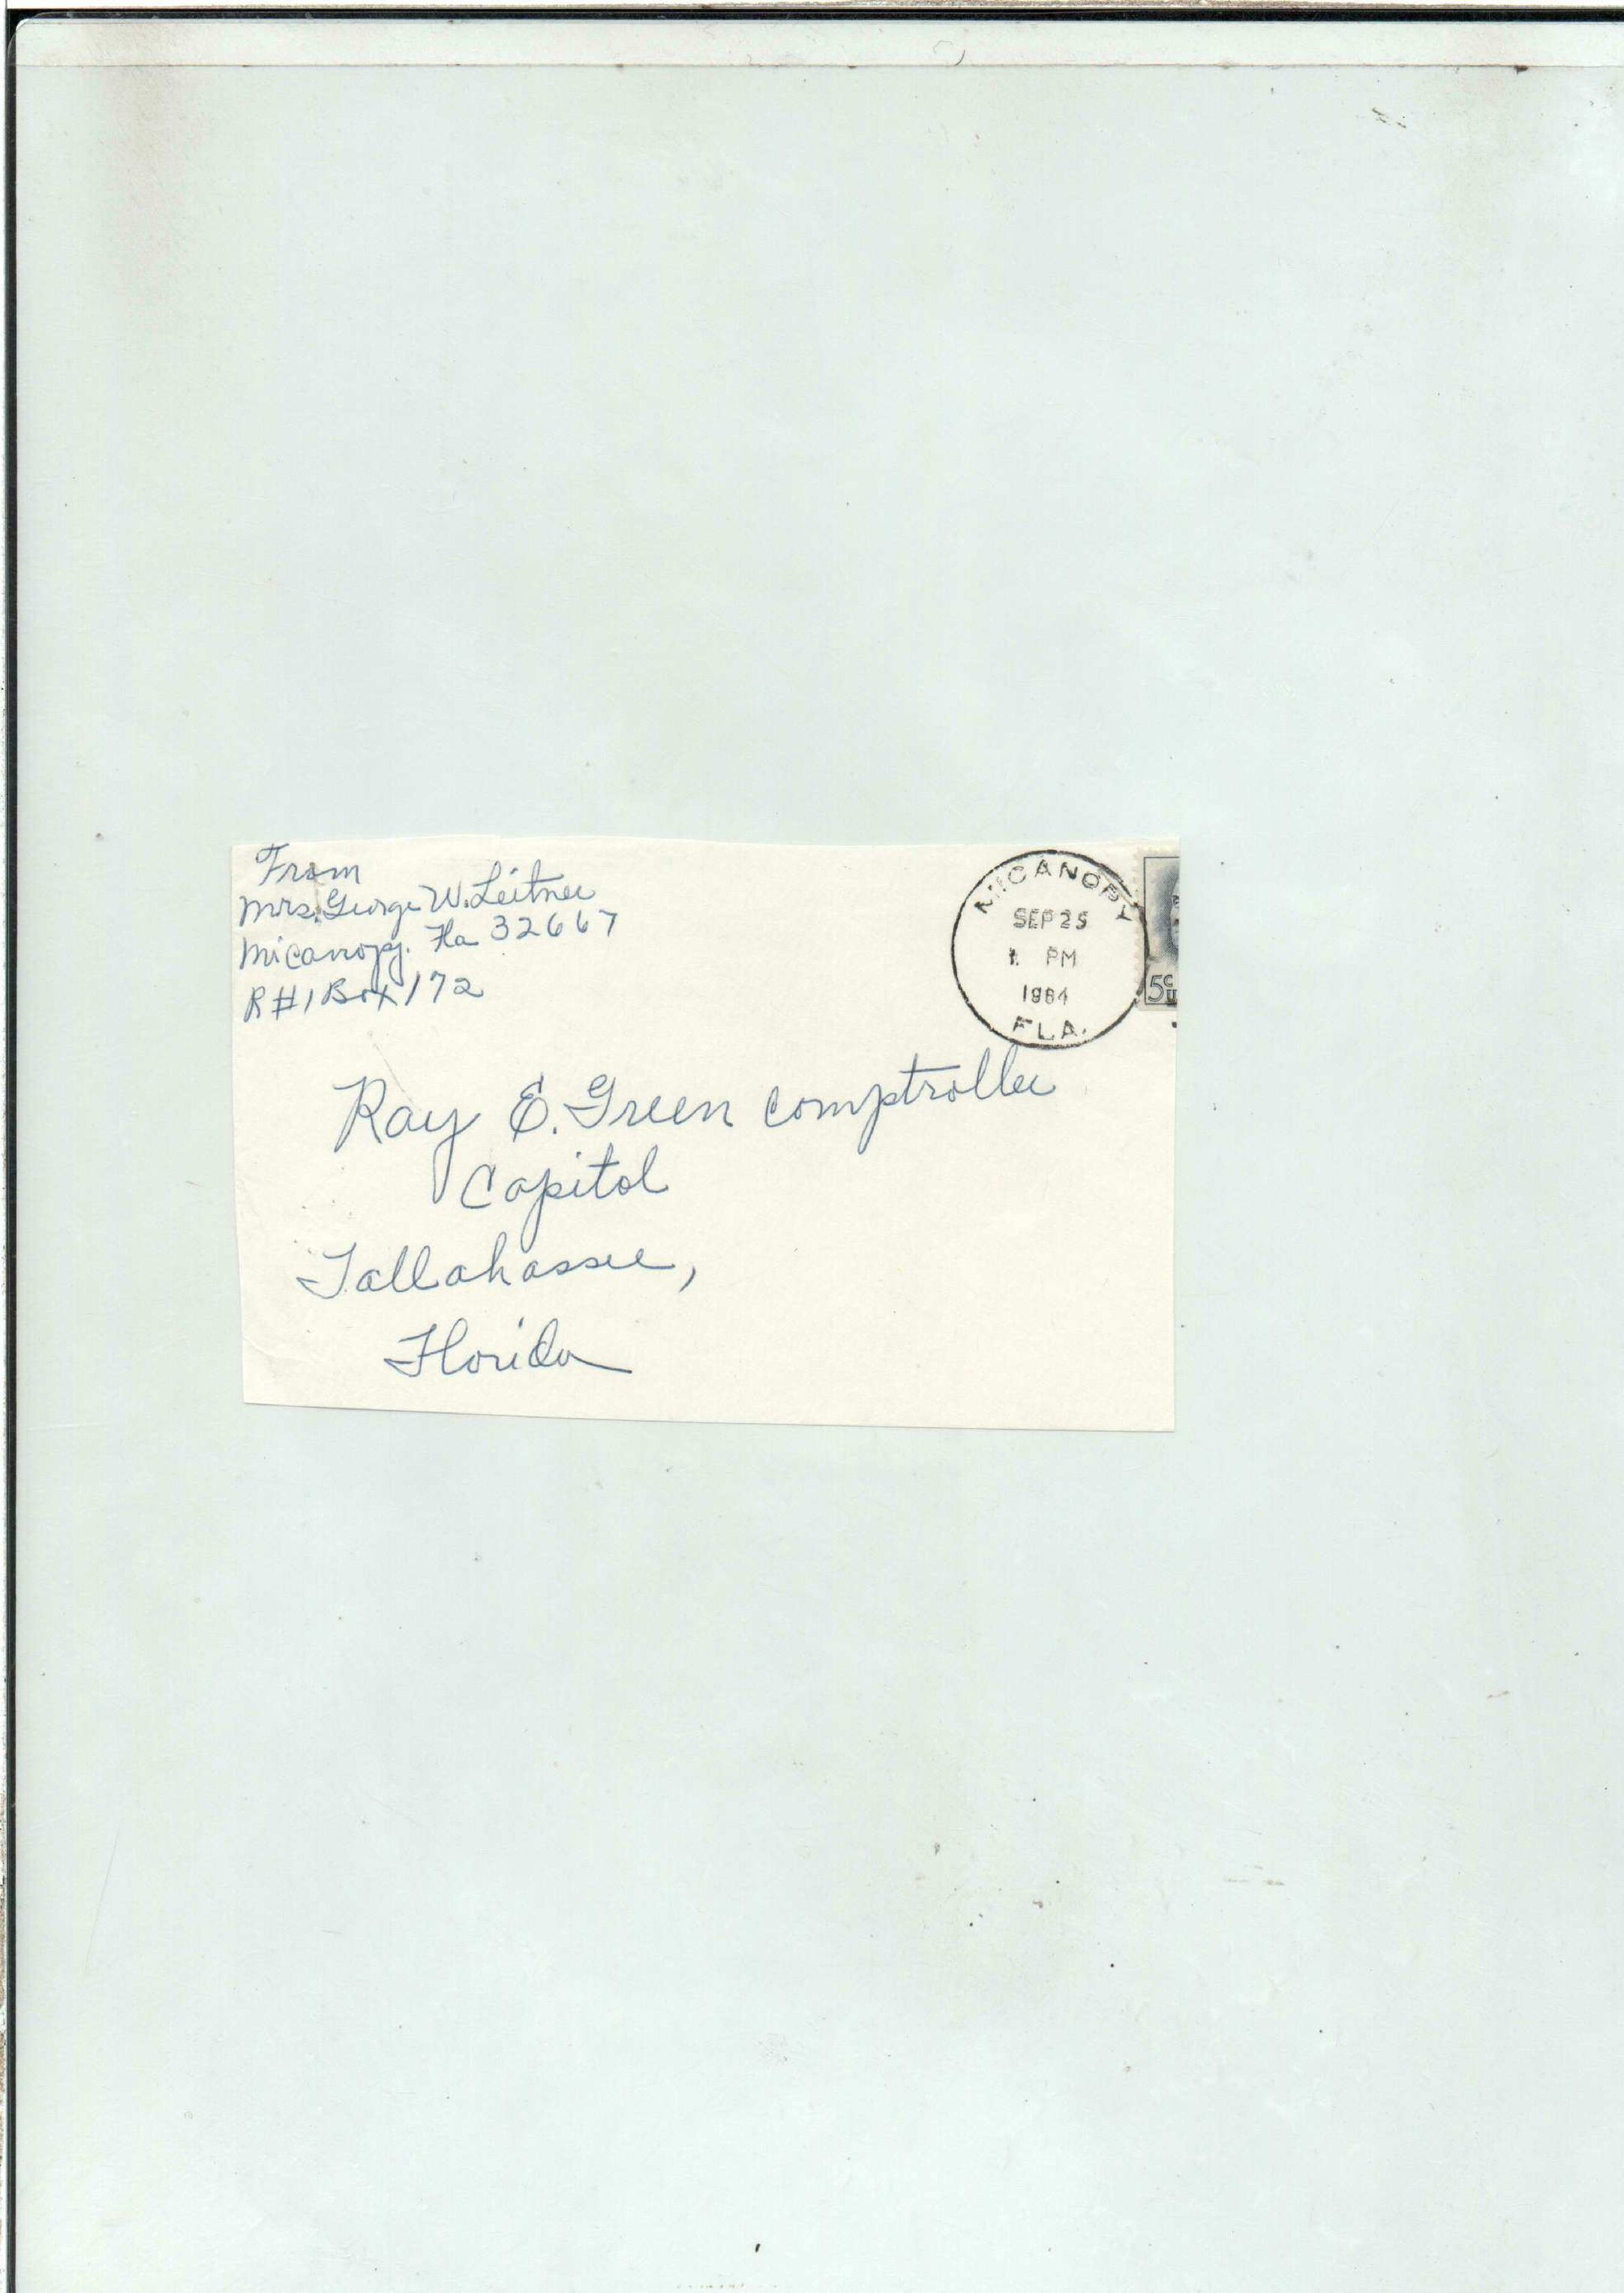 From
Mrs. George W. Leitner
Micanopy. Fla 32667
R#1 Box 172
MICANOPY
SEP 25
1 PM
1964
FLA.
5¢
Ray E. Green comptroller
Capitol
Tallahassee,
Florida